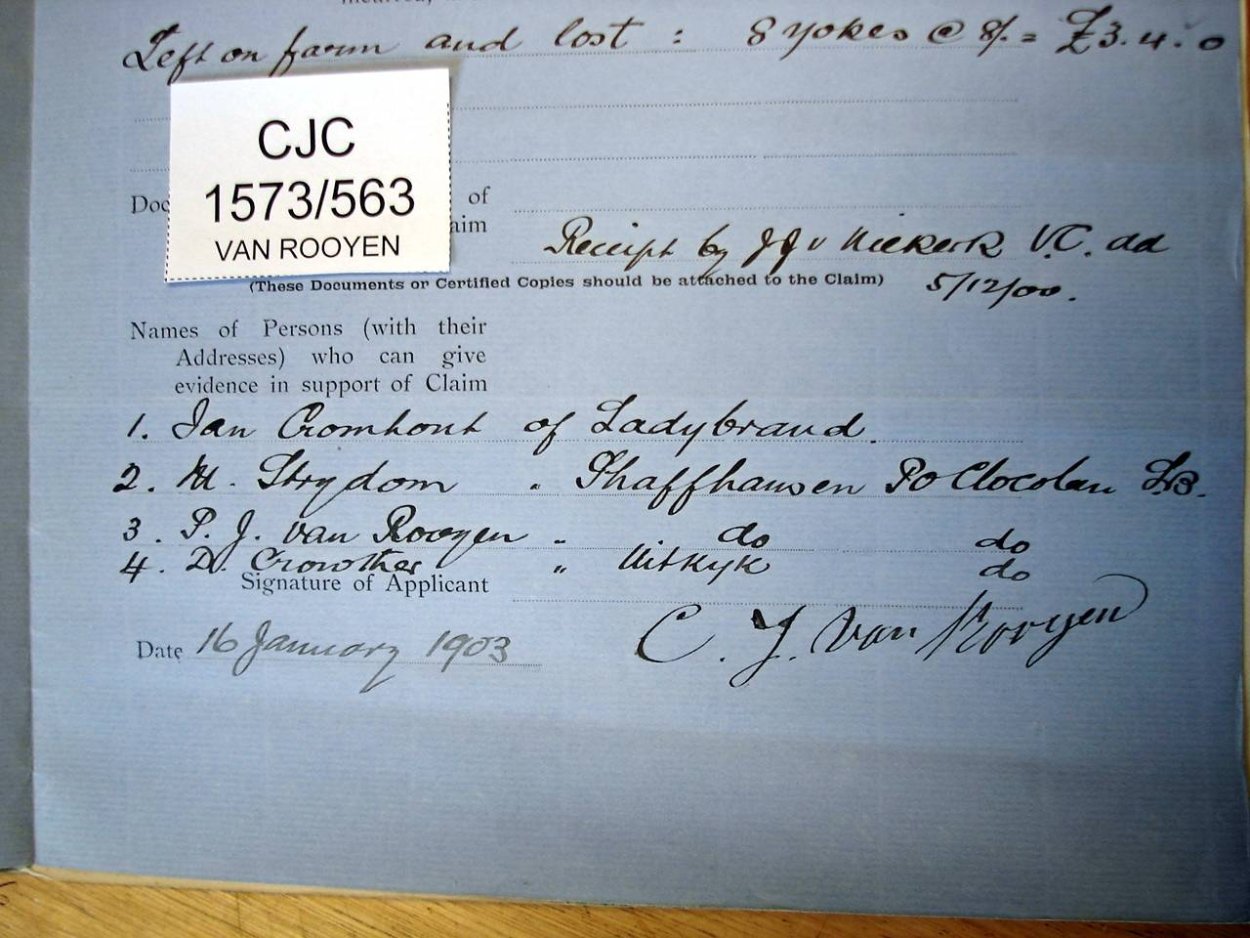 Left on farm and lost : 8 yokes @ 8/. = £3. 4. 0
CJC
1573/563
VAN ROOYEN
Doc of
aim
Receipt by J J v Niekerk V.C. dd
(These Documents or Certified Copies should be attached to the Claim)
5/12/00.
Names of Persons (with their
Addresses) who can give
evidence in support of Claim
1. Jan Cromhout of Ladybrand.
2. M. Strydom " Shaffhausen PO Clocolan LB.
3. P. J. van Rooyen " do do
4. D. Crowther " Uitkyk do
Signature of Applicant
C. J. van Rooyen
Date 16 January 1903